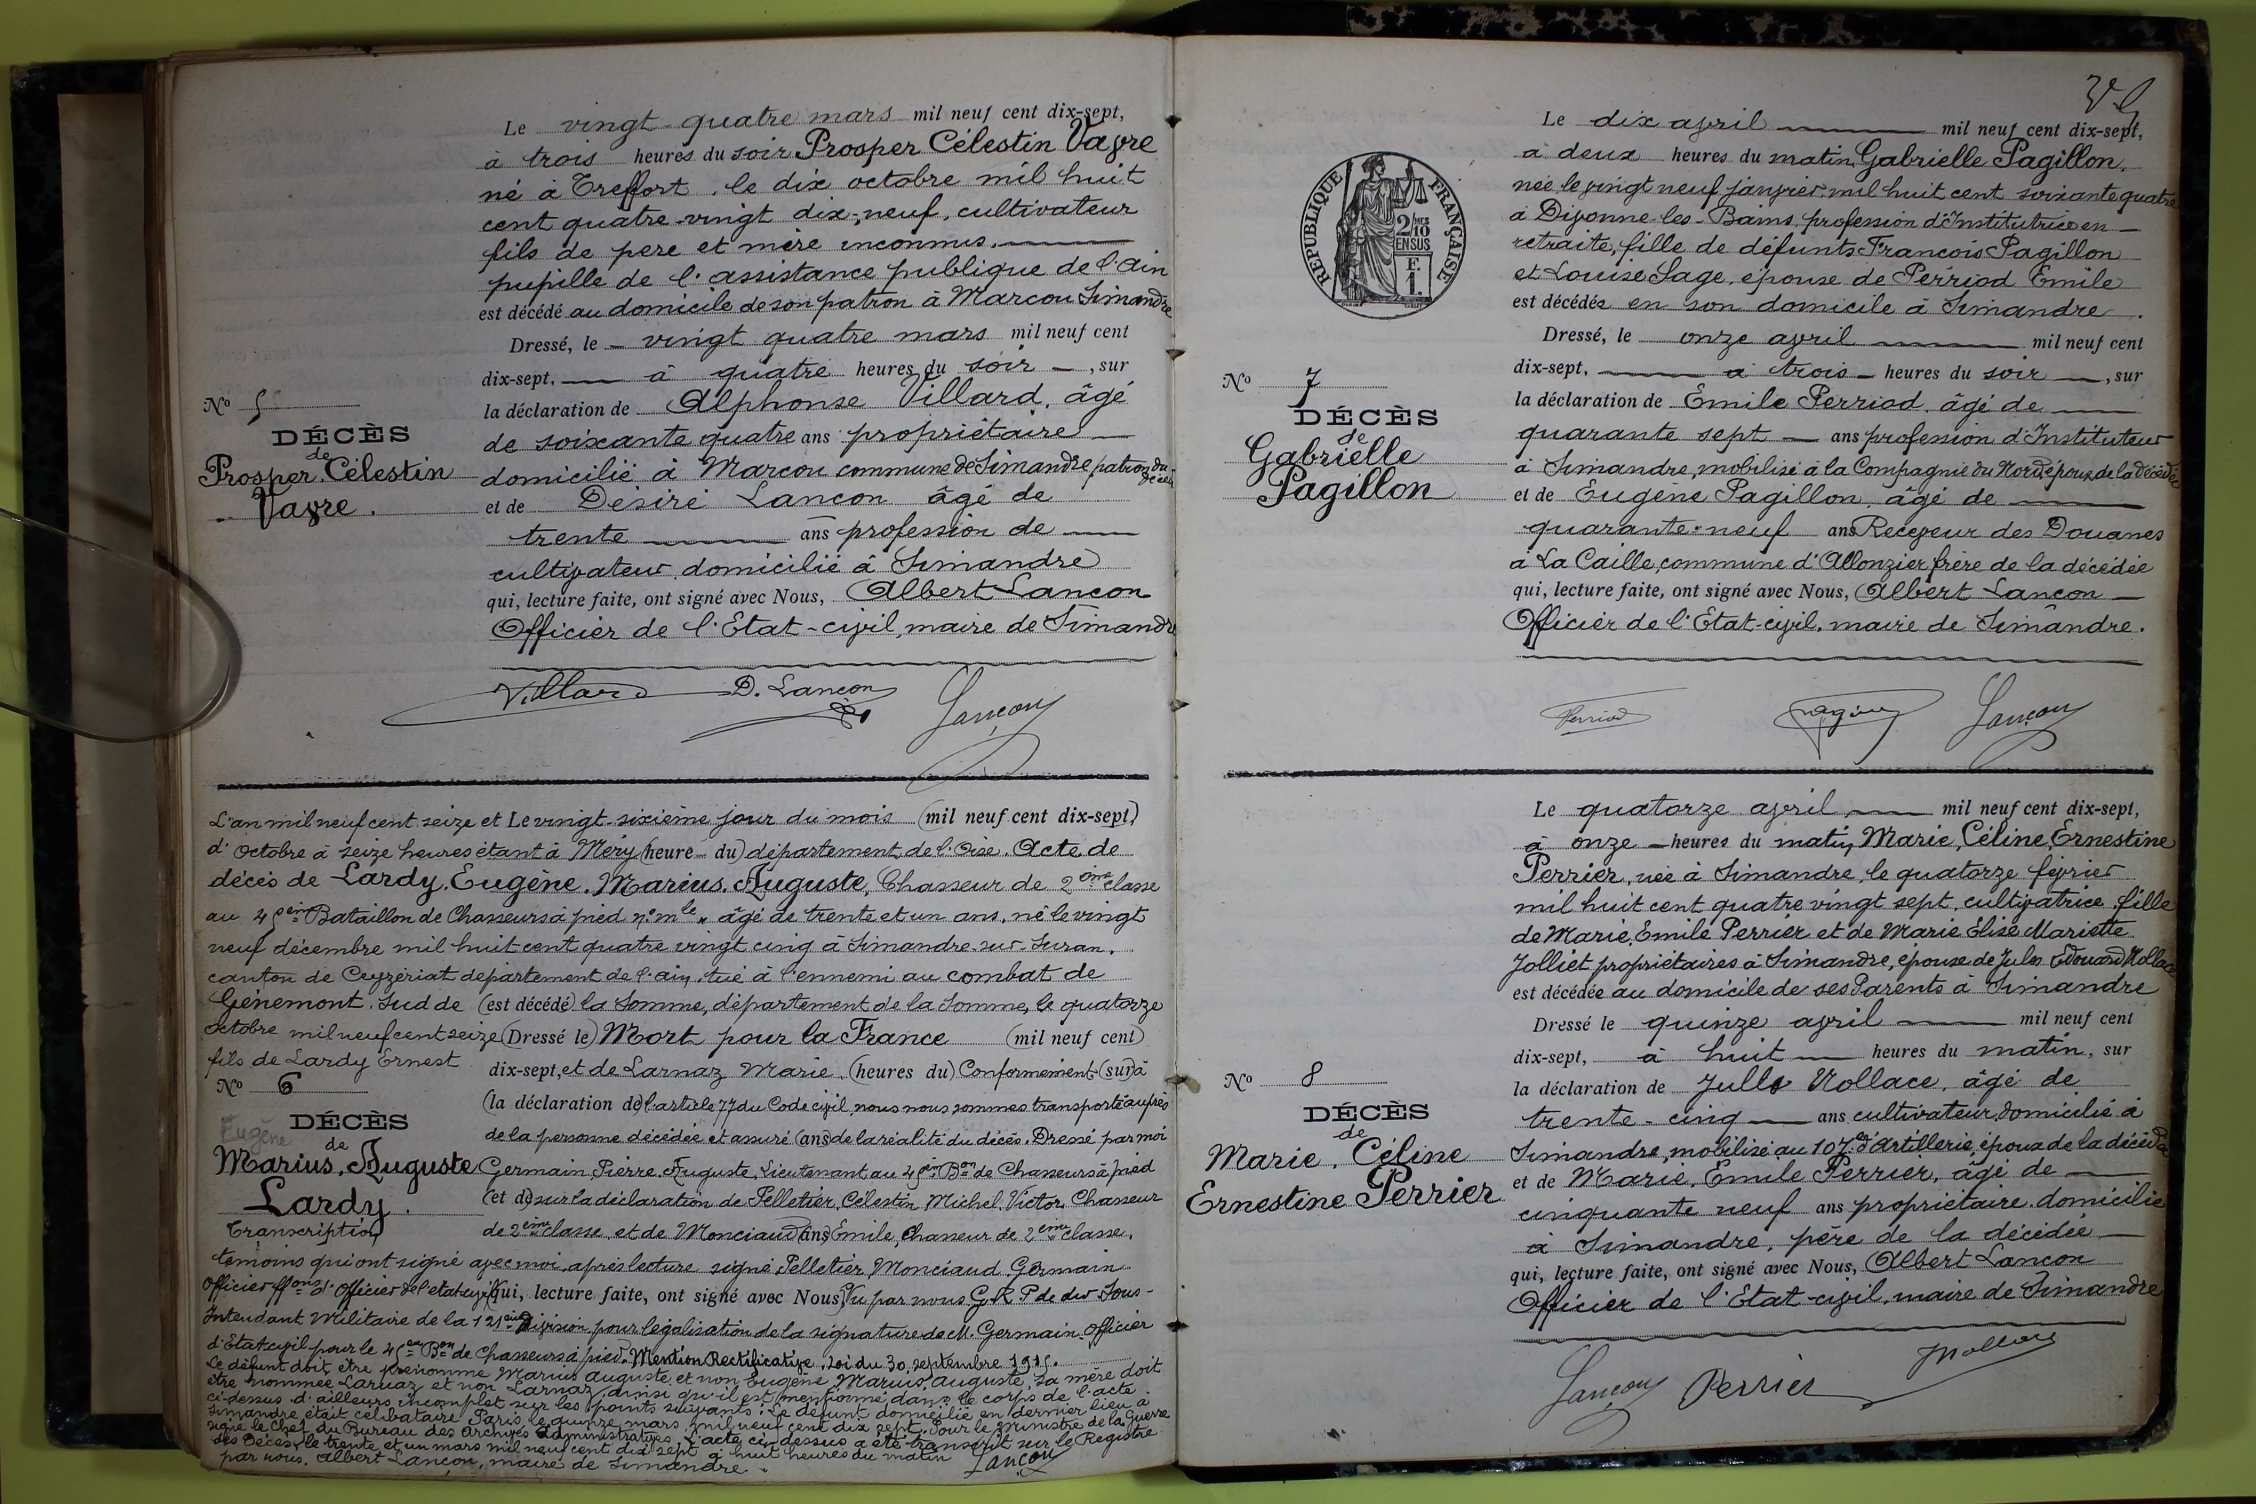 Le vingt-quatre mars mil neuf cent dix-sept,
à trois heures du soir Prosper Célestin Vayre
né à Treffort, le dix octobre mil huit
cent quatre-vingt dix-neuf, cultivateur
fils de père et mère inconnus,
pupille de l'assistance publique de l'Ain
est décédé au domicile de son patron à Marcou Simandre
Dressé, le vingt quatre mars mil neuf cent
dix-sept, à quatre heures du soir, sur
la déclaration de Alphonse Villard, âgé
de soixante quatre ans propriétaire
domicilié à Marcou commune de Simandre patron du
décédé
et de Désiré Lancon âgé de
trente ans profession de
cultivateur, domicilié à Simandre
qui, lecture faite, ont signé avec Nous, Albert Lancon
Officier de l'Etat-civil, maire de Simandre
No 5
DÉCÈS
de
Prosper Célestin
Vayre.
Villard D. Lancon Lançon
L'an mil neuf cent seize et Le vingt-sixième jour du mois (mil neuf cent dix-sept,)
d'Octobre à seize heures étant à Méry (heure du) département de l'Oise. Acte de
décès de Lardy, Eugène, Marius, Auguste, Chasseur de 2ème classe
au 45ème Bataillon de Chasseurs à pied no mle " âgé de trente et un ans, né le vingt
neuf décembre mil huit cent quatre vingt cinq à Simandre-sur-Suran,
canton de Ceyzériat département de l'ain, tué à l'ennemi au combat de
Génémont. Sud de (est décédé) la Somme, département de la Somme, le quatorze
octobre mil neuf cent seize (Dressé le) Mort pour la France (mil neuf cent)
fils de Lardy Ernest dix-sept, et de Larnaz Marie, (heures du) Conformément (sur) à
No 6
(la déclaration de) l'article 77 du Code civil, nous nous sommes transporté auprès
DÉCÈS
Eugène
de
de la personne décédée et assuré (ans) de la réalité du décès. Dressé par moi
Marius, Auguste Germain, Pierre, Auguste, Lieutenant au 45ème Bon de Chasseurs à pied
Lardy.
(et de) sur la déclaration de Pelletier, Célestin, Michel, Victor, Chasseur
Transcription
de 2ème classe, et de Monciaud (ans) Emile, Chasseur de 2ème classe,
témoins qui ont signé avec moi, après lecture signé Pelletier, Monciaud, Germain
Officier ffons d'Officier de l'état-civil (qui, lecture faite, ont signé avec Nous,) Vu par nous Sous-
Intendant Militaire de la 121ème Division, pour légalisation de la signature de M. Germain, Officier
d'Etat-civil pour le 45ème Bon de Chasseurs à pied. Mention Rectificative, Loi du 30 septembre 1915.
Le défunt doit être prénommé Marius Auguste, et non Eugène, Marius, Auguste, Sa mère doit
être nommée Laruaz et non Larnaz, ainsi qu'il est mentionné dans le corps de l'acte
ci-dessus d'ailleurs incomplet sur les points suivants: Le défunt domicilié en dernier lieu à
Simandre était célibataire. Paris, le quinze mars mil neuf cent dix sept. Pour le ministre de la Guerre
signé le Chef du Bureau des Archives Administratives. L'acte ci-dessus a été transcrit sur le Registre
des Décès, le trente et un mars mil neuf cent dix sept à huit heures du matin
par nous, Albert Lancon, maire de Simandre. Lançon
Le dix avril mil neuf cent dix-sept,
à deux heures du matin, Gabrielle Pagillon,
née le vingt neuf janvier mil huit cent soixante quatre
à Divonne-les-Bains, profession d'Institutrice en
retraite, fille de défunts François Pagillon
et Louise Sage, épouse de Perriod Emile
est décédée en son domicile à Simandre.
Dressé, le onze avril mil neuf cent
dix-sept, à trois heures du soir, sur
la déclaration de Emile Perriod, âgé de
quarante sept ans profession d'Instituteur
à Simandre, mobilisé à la Compagnie du Nord, époux de la décédée
et de Eugène Pagillon, âgé de
quarante-neuf ans Receveur des Douanes
à La Caille, commune d'Allonzier frère de la décédée
qui, lecture faite, ont signé avec Nous, Albert Lancon
Officier de l'Etat-civil, maire de Simandre.
RÉPUBLIQUE FRANÇAISE
2/10
EN SUS
F.
1.
No 7
DÉCÈS
de
Gabrielle
Pagillon
Perriod Lançon
Le quatorze avril mil neuf cent dix-sept,
à onze heures du matin, Marie, Céline, Ernestine
Perrier, née à Simandre, le quatorze février
mil huit cent quatre vingt sept, cultivatrice, fille
de Marie, Emile Perrier et de Marie Elise Mariette
Jolliet propriétaires à Simandre, épouse de Jules Edouard Vollace
est décédée au domicile de ses Parents à Simandre
Dressé le quinze avril mil neuf cent
dix-sept, à huit heures du matin, sur
la déclaration de Jules Vollace, âgé de
trente-cinq ans cultivateur, domicilié à
Simandre, mobilisé au 107e d'Artillerie, époux de la décédée
et de Marie, Emile Perrier, âgé de
cinquante neuf ans propriétaire, domicilié
à Simandre, père de la décédée
qui, lecture faite, ont signé avec Nous, Albert Lancon
Officier de l'Etat-civil, maire de Simandre
No 8
DÉCÈS
de
Marie, Céline
Ernestine Perrier
Lançon Perrier